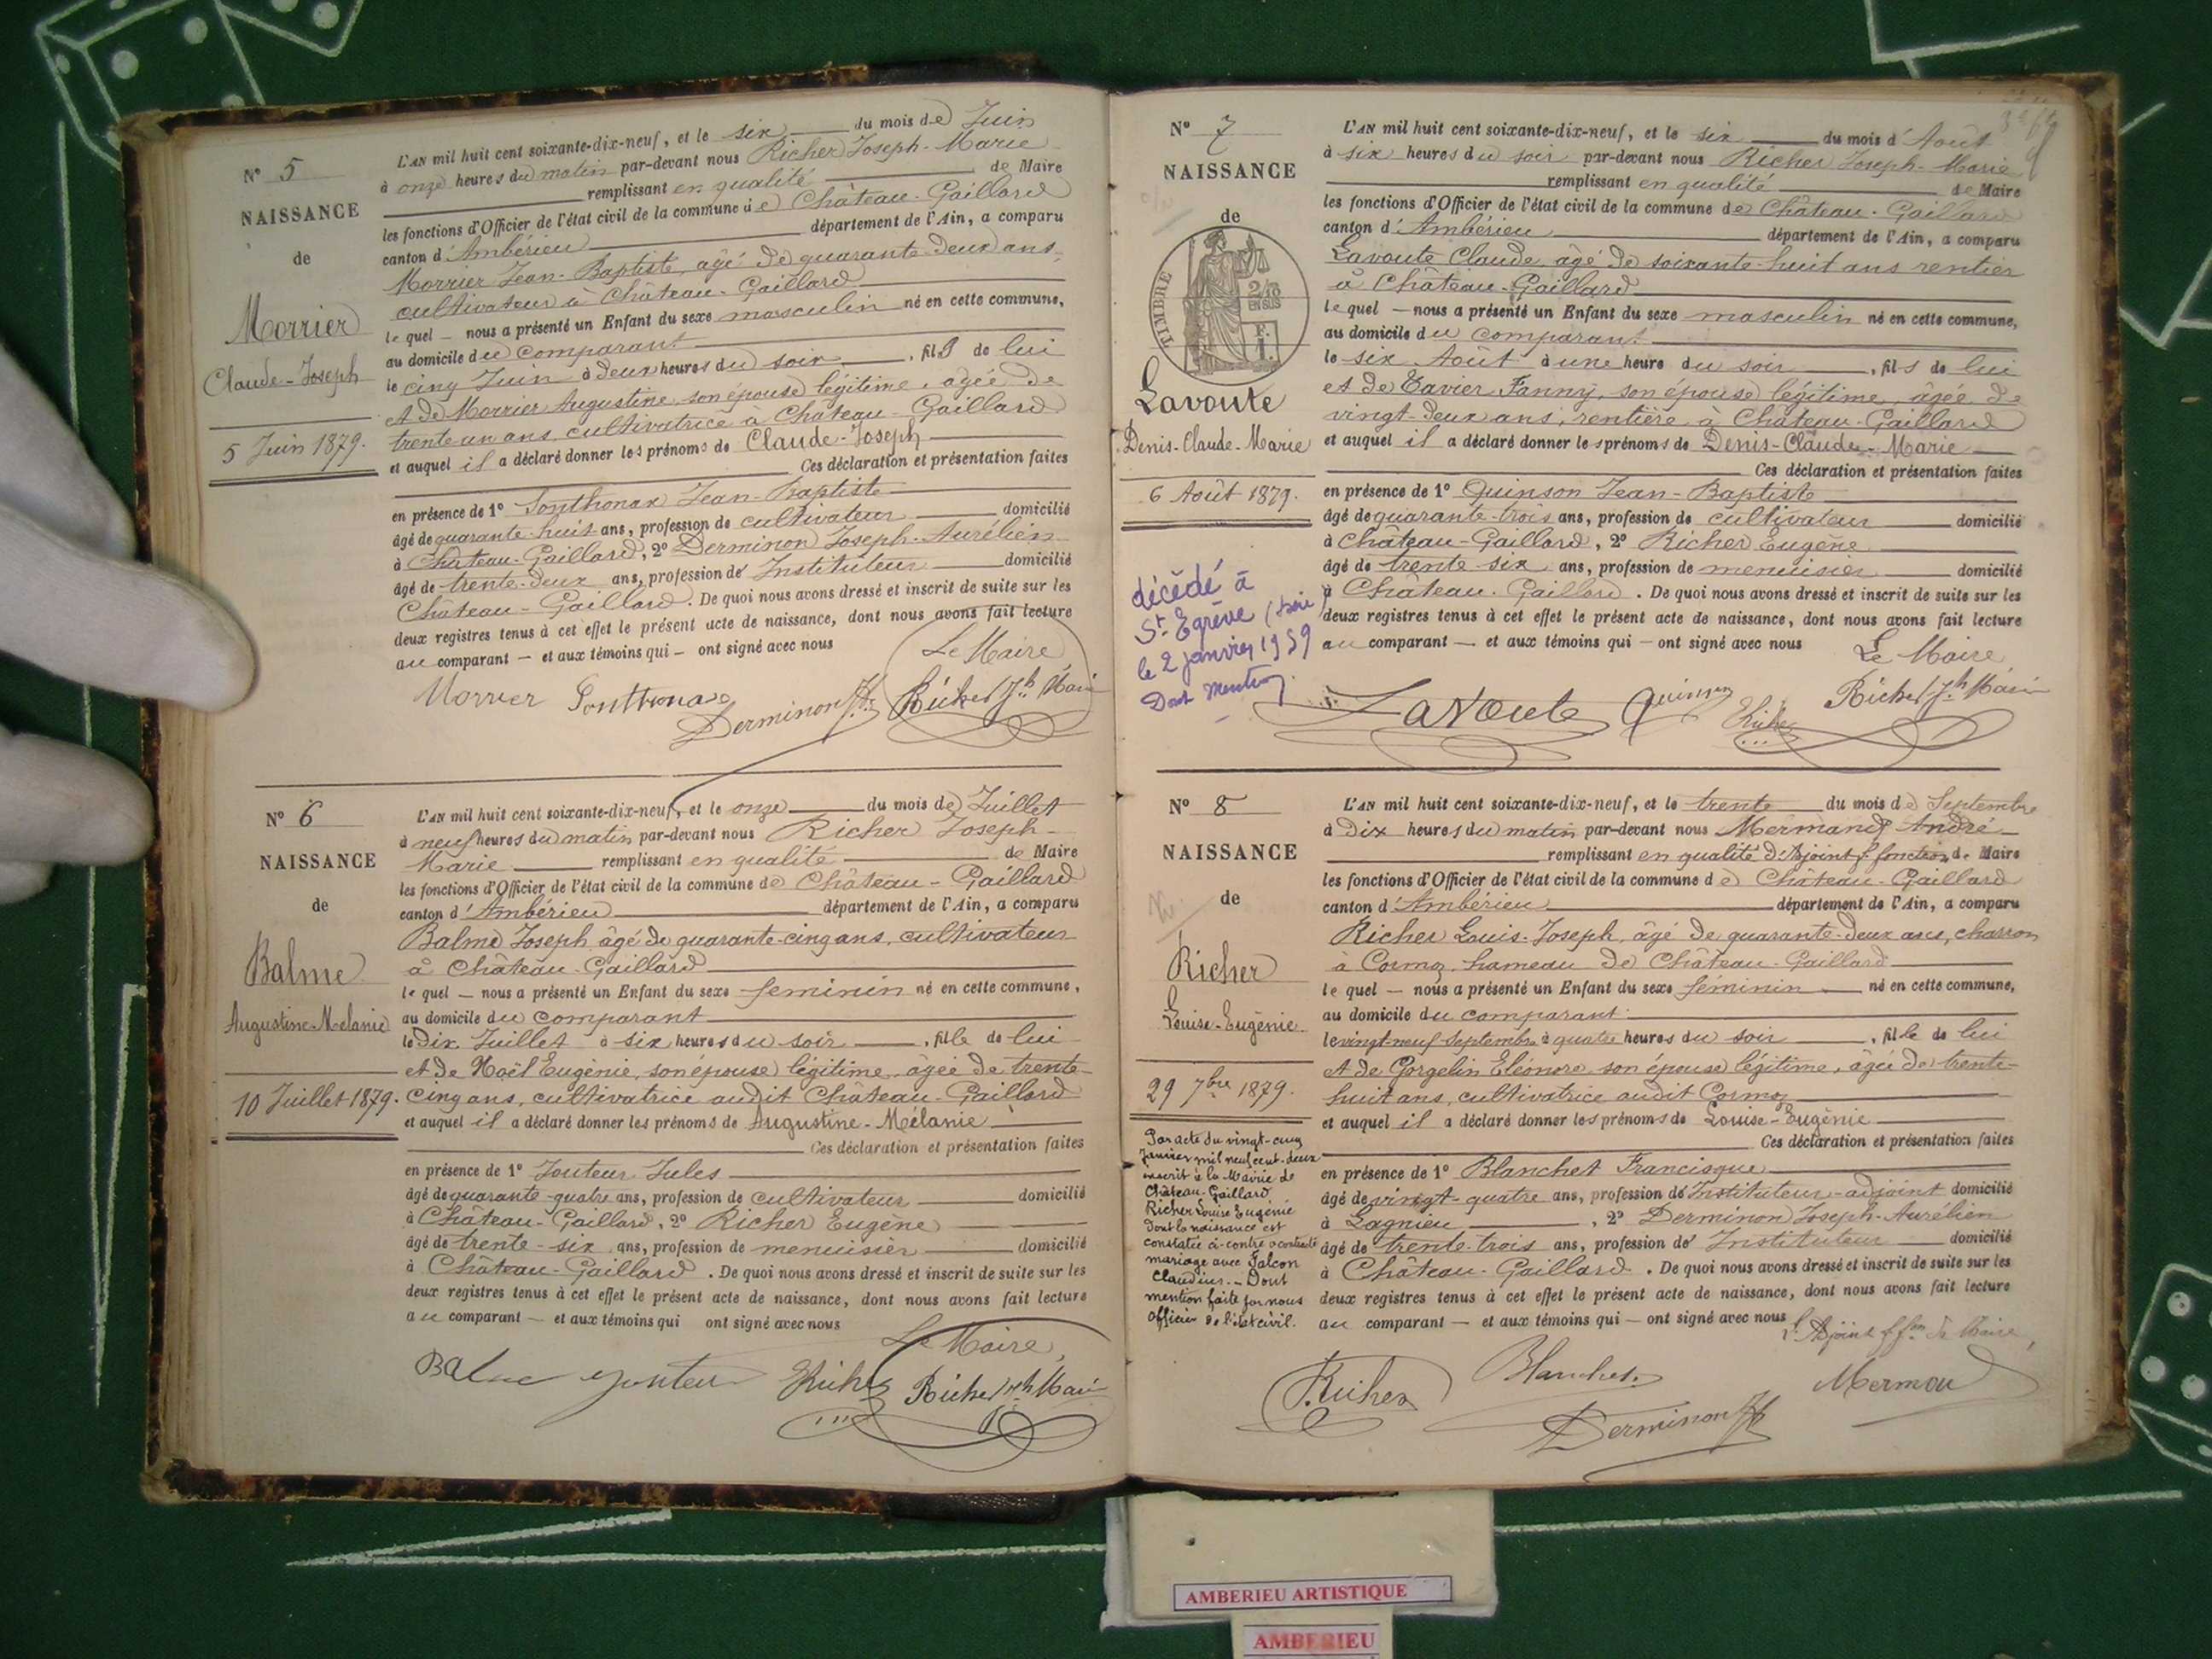 N° 5
NAISSANCE
de
Morrier
Claude-Joseph
5 Juin 1879.
L'AN mil huit cent soixante-dix-neuf, et le six du mois de Juin
à onze heures du matin par-devant nous Richer Joseph-Marie
remplissant en qualité de Maire
les fonctions d'Officier de l'état civil de la commune de Château-Gaillard
canton d'Ambérieu département de l'Ain, a comparu
Morrier Jean-Baptiste, âgé de quarante-deux ans
cultivateur à Château-Gaillard
lequel nous a présenté un Enfant du sexe masculin né en cette commune,
au domicile du comparant
le cinq Juin à deux heures du soir, fils de lui
et de Morrier Augustine, son épouse légitime, âgée de
trente un ans, cultivatrice à Château-Gaillard
et auquel il a déclaré donner les prénoms de Claude-Joseph
Ces déclaration et présentation faites
en présence de 1° Sonthonax Jean-Baptiste
âgé de quarante-huit ans, profession de cultivateur domicilié
à Château-Gaillard, 2° Derminon Joseph-Aurélien
âgé de trente-deux ans, profession de Instituteur domicilié
Château-Gaillard. De quoi nous avons dressé et inscrit de suite sur les
deux registres tenus à cet effet le présent acte de naissance, dont nous avons fait lecture
au comparant — et aux témoins qui — ont signé avec nous
Le Maire
Morrier Sonthonax Derminon Richer Jh Marie
N° 6
NAISSANCE
de
Balme
Augustine-Mélanie
10 Juillet 1879.
L'AN mil huit cent soixante-dix-neuf, et le onze du mois de Juillet
à neuf heures du matin par-devant nous Richer Joseph-
Marie remplissant en qualité de Maire
les fonctions d'Officier de l'état civil de la commune de Château-Gaillard
canton d'Ambérieu département de l'Ain, a comparu
Balme Joseph âgé de quarante-cinq ans, cultivateur
à Château-Gaillard
lequel — nous a présenté un Enfant du sexe féminin né en cette commune,
au domicile du comparant
le dix Juillet à six heures du soir, fille de lui
et de Noël Eugénie, son épouse légitime, âgée de trente-
cinq ans, cultivatrice audit Château-Gaillard
et auquel il a déclaré donner les prénoms de Augustine-Mélanie
Ces déclaration et présentation faites
en présence de 1° Jouteur Jules
âgé de quarante-quatre ans, profession de cultivateur domicilié
à Château-Gaillard, 2° Richer Eugène
âgé de trente-six ans, profession de menuisier domicilié
à Château-Gaillard. De quoi nous avons dressé et inscrit de suite sur les
deux registres tenus à cet effet le présent acte de naissance, dont nous avons fait lecture
au comparant — et aux témoins qui ont signé avec nous
Le Maire,
Balme Jouteur Richer Richer Jh Marie
N° 7
NAISSANCE
de
TIMBRE
2/10
EN SUS
Lavoute
Denis-Claude-Marie
6 Août 1879.
décédé à
St Egrève (Isère)
le 2 janvier 1959
Dont Mention
L'AN mil huit cent soixante-dix-neuf, et le six du mois d'Août
à six heures du soir par-devant nous Richer Joseph-Marie
remplissant en qualité de Maire
les fonctions d'Officier de l'état civil de la commune de Château-Gaillard
canton d'Ambérieu département de l'Ain, a comparu
Lavoute Claude, âgé de soixante-huit ans rentier
à Château-Gaillard
lequel — nous a présenté un Enfant du sexe masculin né en cette commune,
au domicile du comparant
le six Août à une heure du soir, fils de lui
et de Tavier Fanny, son épouse légitime, âgée de
vingt-deux ans, rentière à Château-Gaillard
et auquel il a déclaré donner les prénoms de Denis-Claude-Marie
Ces déclaration et présentation faites
en présence de 1° Quinson Jean-Baptiste
âgé de quarante-trois ans, profession de cultivateur domicilié
à Château-Gaillard, 2° Richer Eugène
âgé de trente-six ans, profession de menuisier domicilié
à Château-Gaillard. De quoi nous avons dressé et inscrit de suite sur les
deux registres tenus à cet effet le présent acte de naissance, dont nous avons fait lecture
au comparant — et aux témoins qui — ont signé avec nous
Le Maire
Lavoute Quinson Richer Richer Jh Marie
N° 8
NAISSANCE
de
Richer
Louise-Eugénie
29 7bre 1879.
Par acte du vingt-cinq
Janvier mil neuf cent-deux
inscrit à la Mairie de
Château-Gaillard
Richer Louise Eugénie
dont la naissance est
constatée ci-contre a contracté
mariage avec Falcon
Claudius. — Dont
mention faite par nous
Officier de l'état civil.
L'AN mil huit cent soixante-dix-neuf, et le trente du mois de Septembre
à dix heures du matin par-devant nous Mermand André
remplissant en qualité d'Adjoint f. fonctions de Maire
les fonctions d'Officier de l'état civil de la commune de Château-Gaillard
canton d'Ambérieu département de l'Ain, a comparu
Richer Louis-Joseph, âgé de quarante-deux ans, charron
à Cormoz, hameau de Château-Gaillard
lequel — nous a présenté un Enfant du sexe féminin né en cette commune,
au domicile du comparant
le vingt-neuf Septembre à quatre heures du soir, fille de lui
et de Gorgelin Eléonore son épouse légitime, âgée de trente-
huit ans, cultivatrice audit Cormoz
et auquel il a déclaré donner les prénoms de Louise-Eugénie
Ces déclaration et présentation faites
en présence de 1° Blanchet Francisque
âgé de vingt-quatre ans, profession de Instituteur-adjoint domicilié
à Lagnieu, 2° Derminon Joseph-Aurélien
âgé de trente-trois ans, profession de Instituteur domicilié
à Château-Gaillard. De quoi nous avons dressé et inscrit de suite sur les
deux registres tenus à cet effet le présent acte de naissance, dont nous avons fait lecture
au comparant — et aux témoins qui — ont signé avec nous
l'Adjoint f. fon de Maire,
Richer Blanchet Derminon Mermand
AMBERIEU ARTISTIQUE
AMBERIEU